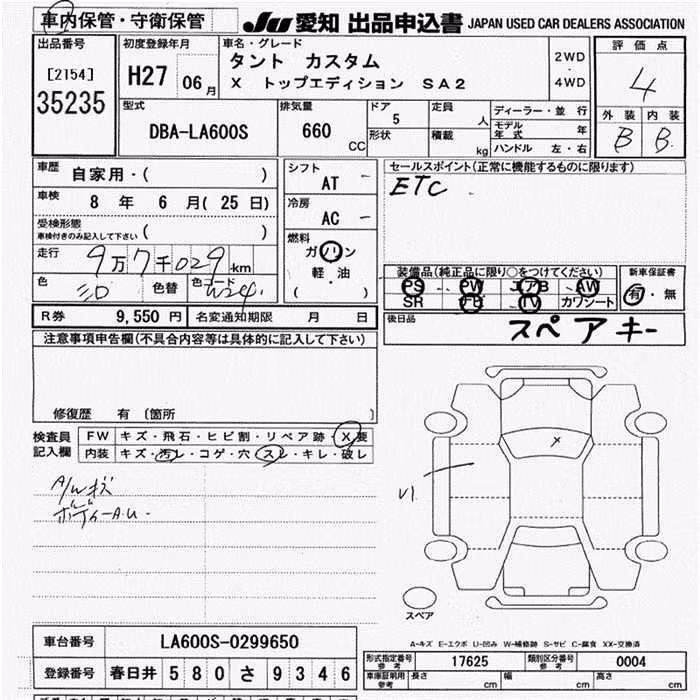 車内保管・守衛保管 JU 愛知 出品申込書 JAPAN USED CAR DEALERS ASSOCIATION
出品番号 [2154] 35235
初度登録年月 H27 06月
車名・グレード タント カスタム X トップエディション SA2
2WD・4WD
評価点 4
外装 内装
B B
型式 DBA-LA600S
排気量 660 CC
ドア 5
形状
定員 人
積載 kg
ディーラー・並行
モデル年式 年
ハンドル 左・右
車歴 自家用・( )
車検 8年 6月(25日)
受検形態 車検付きのみ記入して下さい ( )
走行 9万7千029km
色 シロ 色替 色コード W24
シフト AT
冷房 AC
燃料 ガソリン 軽・油 ( )
セールスポイント(正常に機能するものに限ります)
ETC
装備品(純正品に限り○をつけてください)
PS PW エアB AW
SR FB TV カワシート
新車保証書 有・無
R券 9,550円 名変通知期限 月 日
後日品 スペアキー
注意事項申告欄(不具合内容等は具体的に記入して下さい)
修復歴 有 〔箇所 〕
検査員記入欄
FW キズ・飛石・ヒビ割・リペア跡・X要
内装 キズ・汚レ・コゲ・穴・スレ・キレ・破レ
A/Wキズ
ボディーA.U.
X
U1
スペア
A-キズ E-エクボ U-凹み W-補修跡 S-サビ C-腐食 XX-交換済
車台番号 LA600S-0299650
登録番号 春日井 580 さ 9346
形式指定番号 参考 17625 類別区分番号 参考 0004
車庫証明用 参考 長さ cm 幅 cm 高さ cm